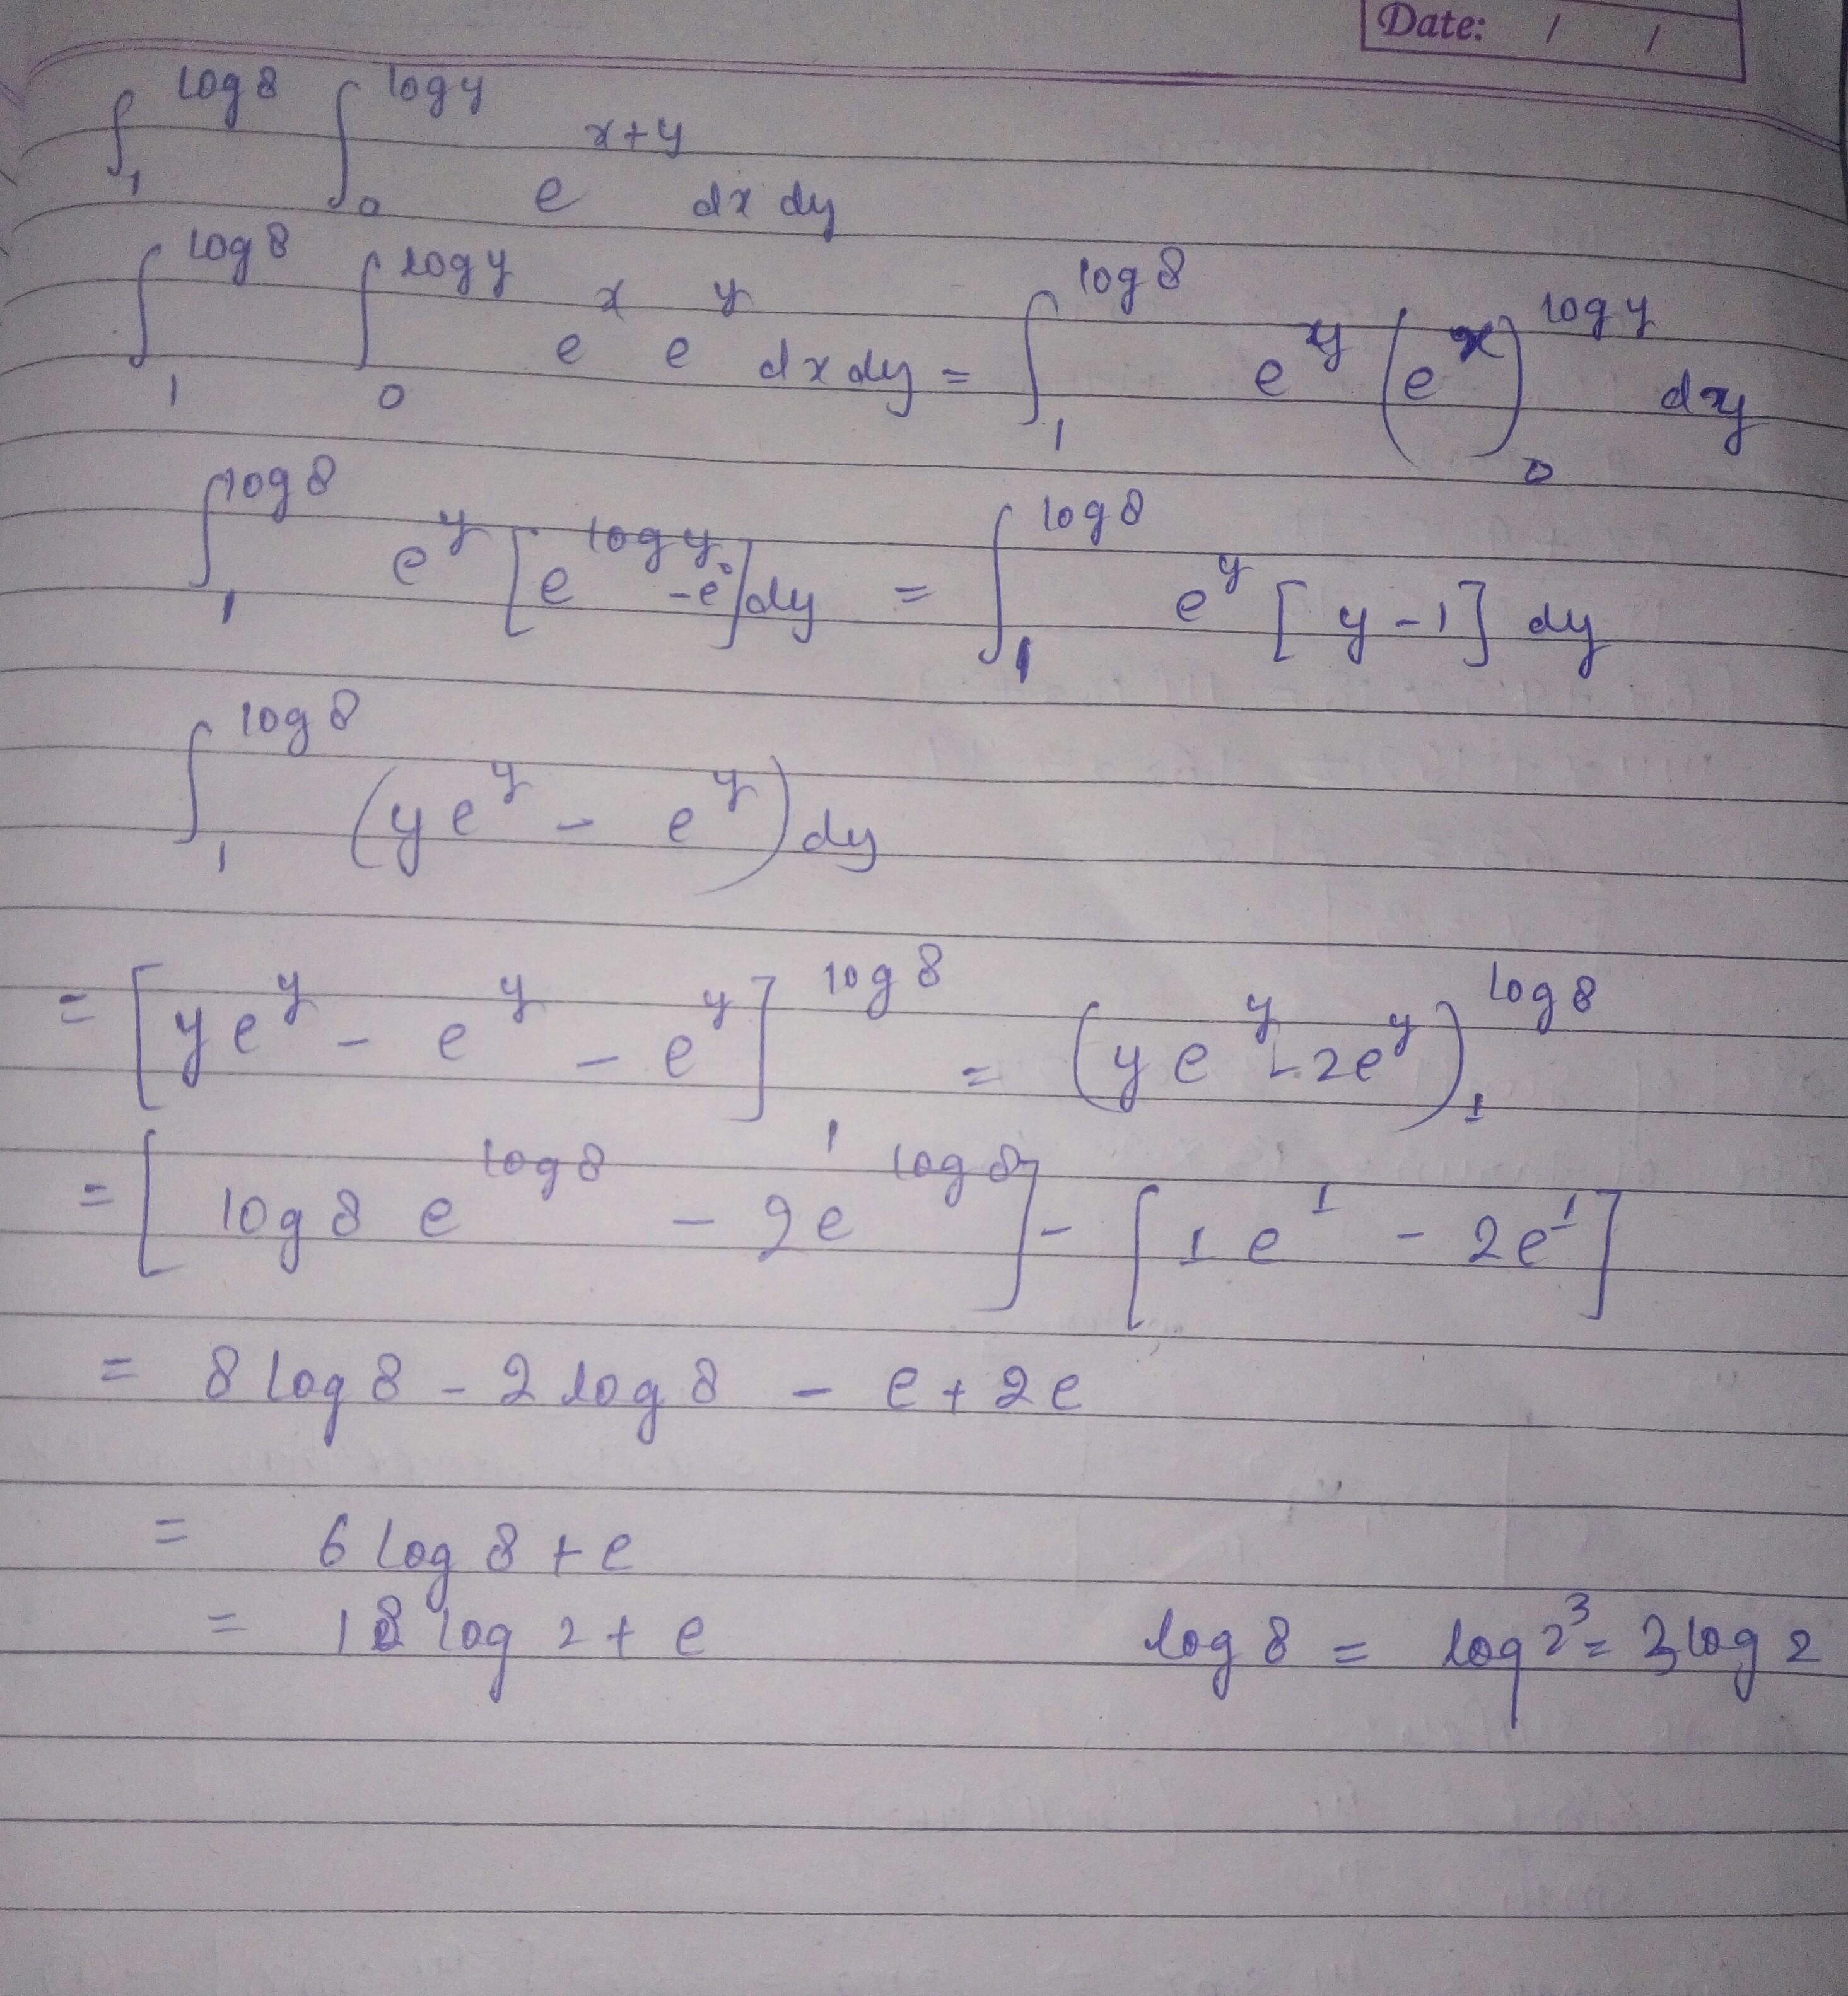 Date: / /
∫_1^{log 8} ∫_0^{log y} e^{x+y} dx dy
∫_1^{log 8} ∫_0^{log y} e^x e^y dx dy = ∫_1^{log 8} e^y (e^x)_0^{log y} dy
∫_1^{log 8} e^y [e^{log y} - e^0] dy = ∫_1^{log 8} e^y [y - 1] dy
∫_1^{log 8} (y e^y - e^y) dy
= [y e^y - e^y - e^y]_1^{log 8} = (y e^y - 2e^y)_1^{log 8}
= [log 8 e^{log 8} - 2e^{log 8}] - [1 e^1 - 2e^1]
= 8 log 8 - 2 log 8 - e + 2e
= 6 log 8 + e
= 18 log 2 + e log 8 = log 2^3 = 3 log 2